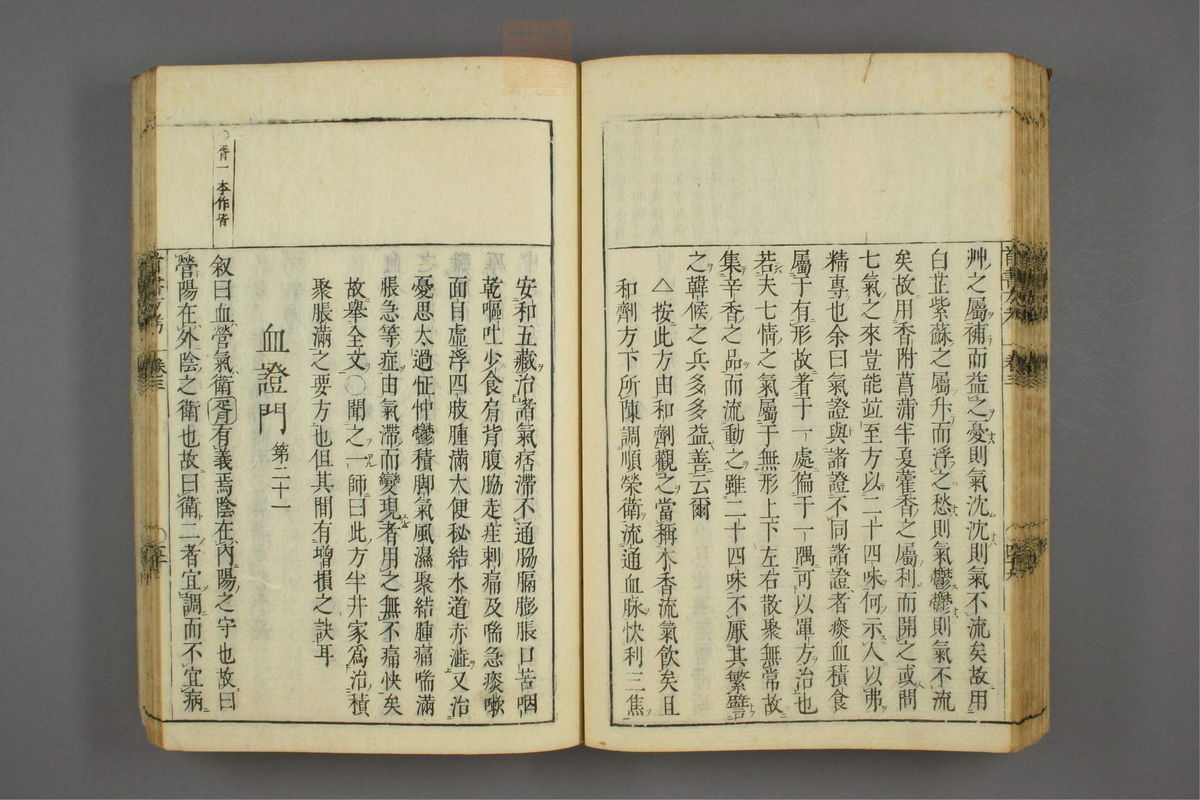 艸之屬補而益之憂則氣沈沈則氣不流矣故用
白芷紫蘇之屬升而浮之愁則氣鬱鬱則氣不流
矣故用香附菖蒲半夏藿香之屬利而開之或問
七氣之來豈能並至方以二十四味何示人以弗
精專也余曰氣證與諸證不同諸證者痰血積食
屬于有形故著于一處偏于一隅可以單方治也
若夫七情之氣屬于無形上下左右散聚無常故
集辛香之品而流動之雖二十四味不厭其繁譬
之韓候之兵多多益善云爾
△按此方由和劑觀之當稱木香流氣飲矣且
和劑方下所陳調順榮衛流通血脉快利三焦
安和五藏治諸氣痞滯不通胸膈膨脹口苦咽
乾嘔吐少食肩背腹脇走疰刺痛及喘急痰嗽
面目虛浮四肢腫滿大便秘結水道赤澁又治
憂思太過怔忡鬱積脚氣風濕聚結腫痛喘滿
脹急等症由氣滯而變現者用之無不痛快矣
故舉全文○聞之一師曰此方半井家爲治積
聚脹滿之要方也但其間有增損之訣耳
血證門 第二十一
○胥一本作皆
叙曰血營氣衛胥有義焉陰在內陽之守也故曰
營陽在外陰之衛也故曰衛二者宜調而不宜病
卷三
卷三